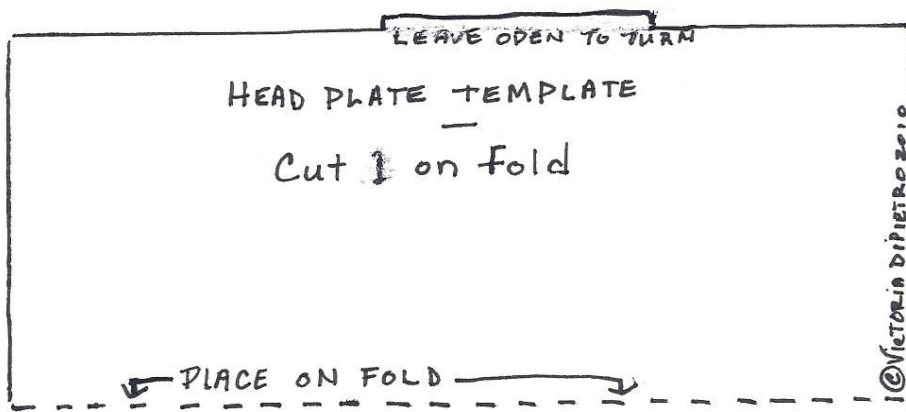 LEAVE OPEN TO TURN
HEAD PLATE TEMPLATE
Cut 1 on fold
PLACE ON FOLD
©VICTORIA DIPIETRO 2010